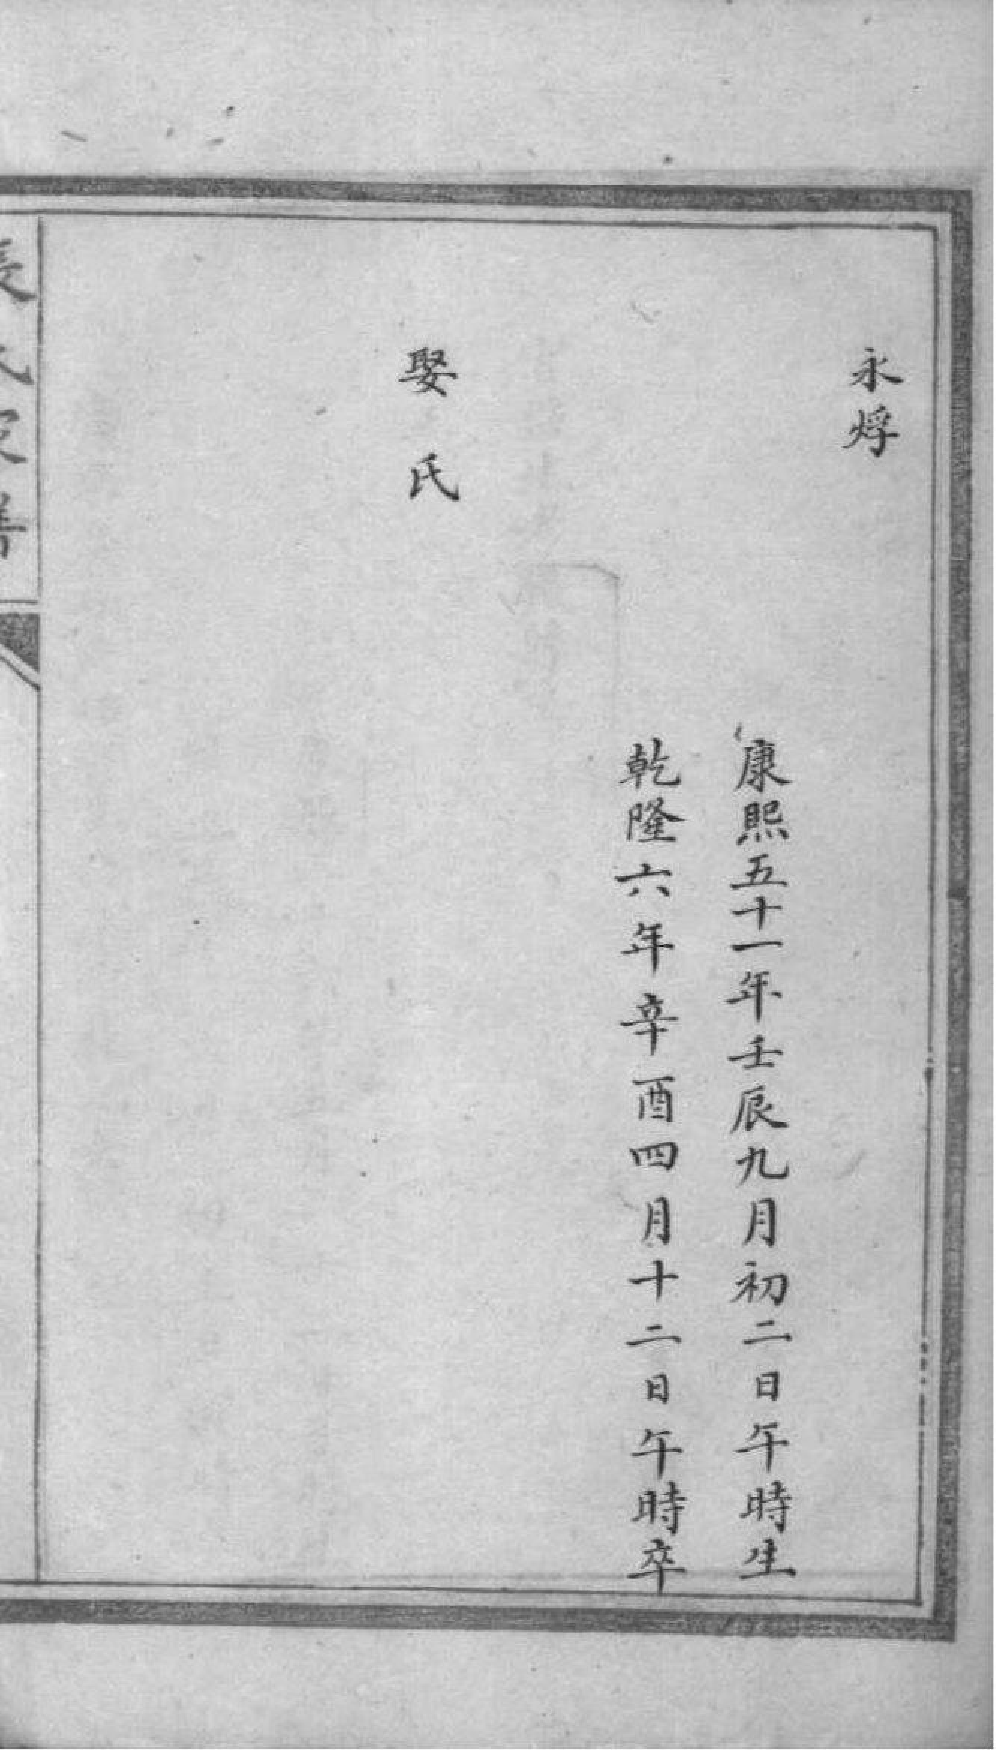 永烰
康熙五十一年壬辰九月初二日午時生
乾隆六年辛酉四月十二日午時卒
娶 氏
長氏家譜